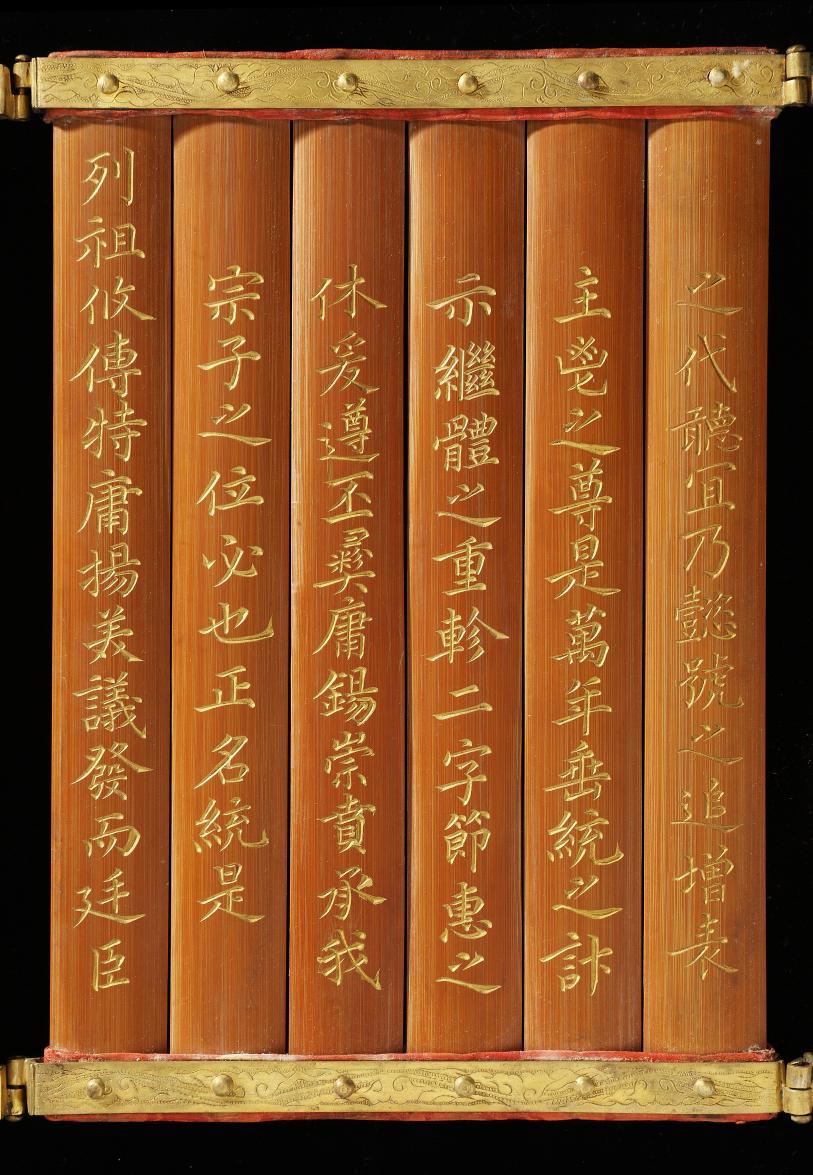 之代聽宜乃懿號之追增表
主鬯之尊是萬年垂統之計
示繼體之重軫二字節惠之
休爰遵丕彝庸錫崇賁承我
宗子之位必也正名統是
列祖攸傳特庸揚美議發而廷臣